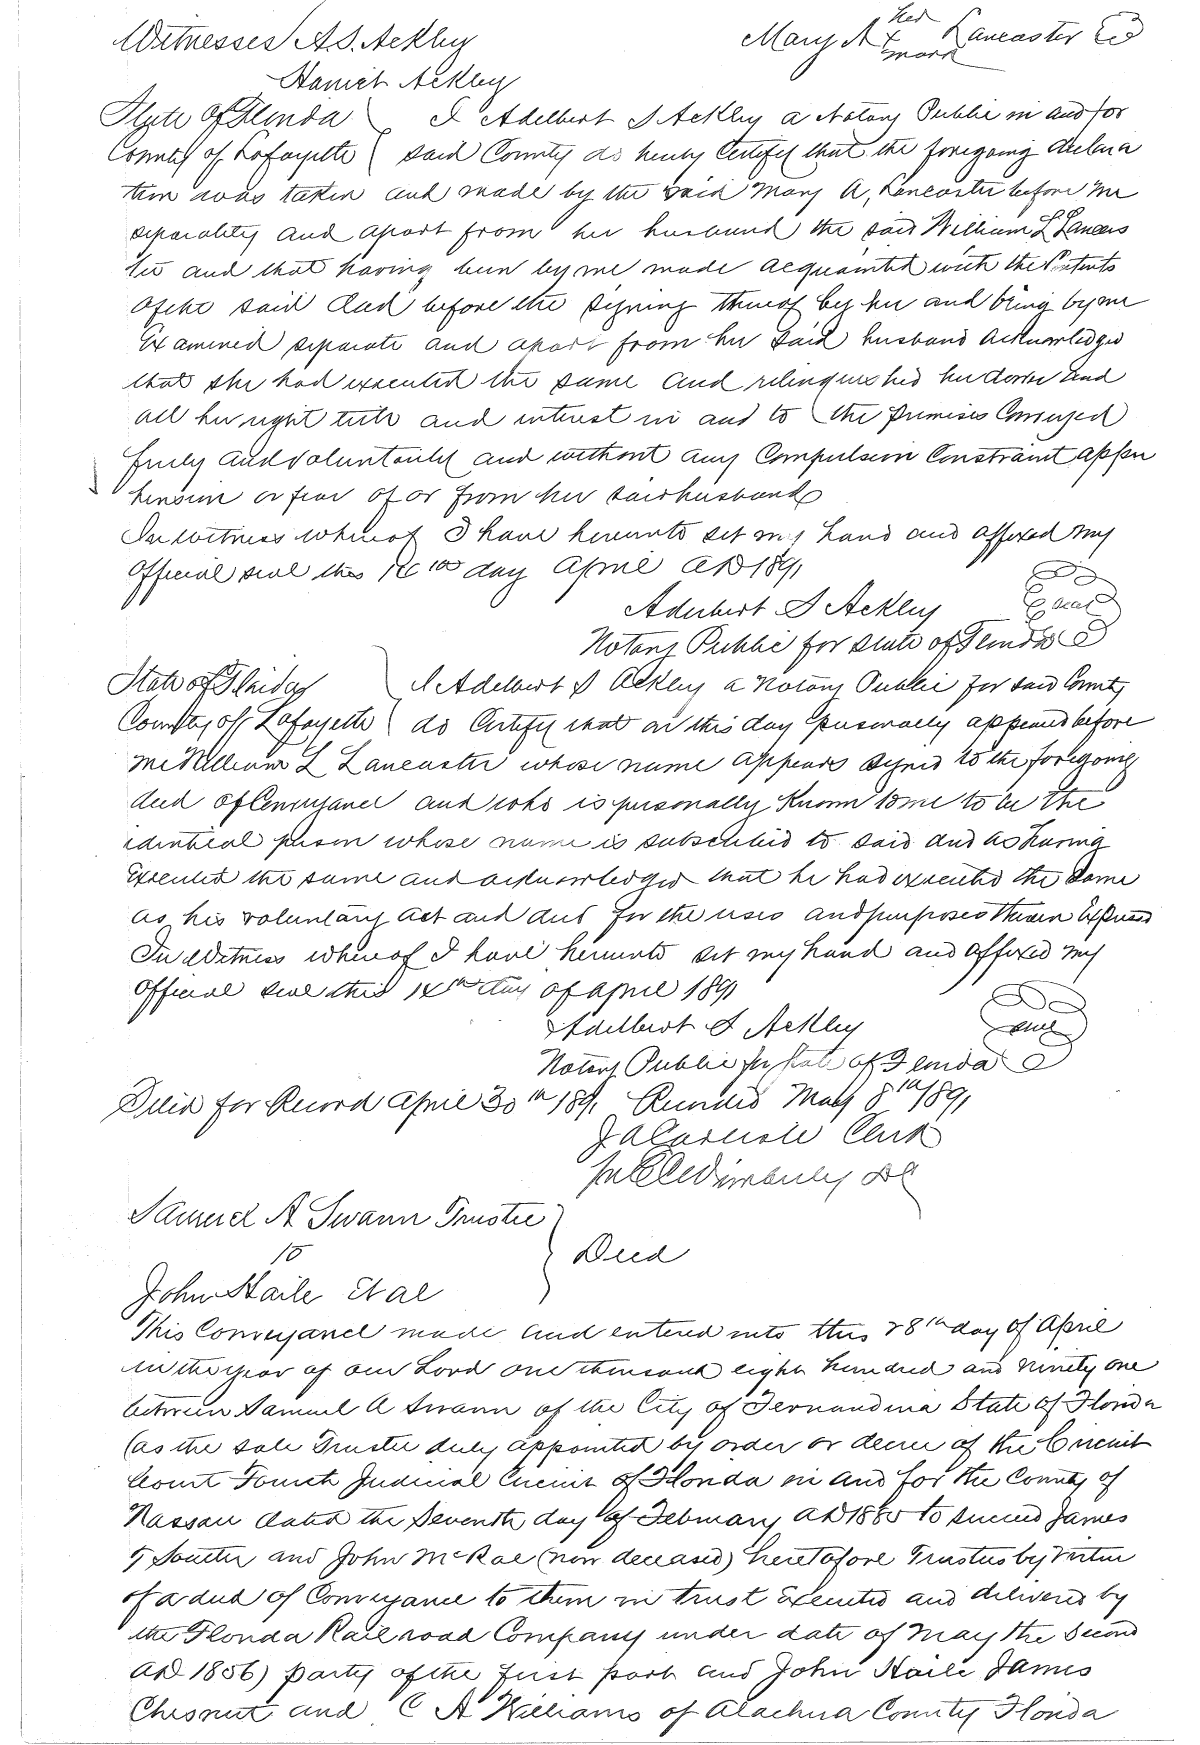 Witnesses A.S. Ackley
Mary A her x mark Lancaster
Harriet Ackley
State of Florida I Adelbert S Ackley a Notary Public in and for
County of Lafayette said County do hereby Certify that the foregoing declara
tion was taken and made by the said Mary A, Lancaster before me
separately and apart from her husband the said William L Lancas
ter and that having been by me made acquainted with the Contents
of the said Deed before the signing thereof by her and being by me
Examined separate and apart from her said husband acknowledged
that she had executed the same and relinquished her dower and
all her right title and interest in and to the premises Conveyed
freely and voluntarily and without any Compulsion Constraint appre
hension or fear of or from her said husband
In witness whereof I have hereunto set my hand and affixed my
Official seal this day April AD 1891
Adelbert S Ackley Seal
Notary Public for State of Florida
State of Florida I Adelbert S Ackley a Notary Public for said County
County of Lafayette do Certify that on this day personally appeared before
me William L Lancaster whose name appears signed to the foregoing
deed of Conveyance and who is personally known to me to be the
identical person whose name is subscribed to said deed as having
Executed the same and acknowledged that he had executed the same
as his voluntary act and deed for the uses and purposes therein Expressed
In Witness whereof I have hereunto set my hand and affixed my
Official seal this day of April 1891
Adelbert S Ackley Seal
Notary Public for State of Florida
Filed for Record April 30th 1891 Recorded May 8th 1891
J A Carlisle Clerk
Wimberly DC
Samuel A Swann Trustee
to Deed
John Haile Et al
This Conveyance made and entered into this 28th day of April
in the year of our Lord one thousand eight hundred and ninety one
between Samuel A Swann of the City of Fernandina State of Florida
(as the sole Trustee duly appointed by order or decree of the Circuit
Court Fourth Judicial Circuit of Florida in and for the County of
Nassau dated the Seventh day of February AD 1880 to succeed James
T Soutter and John McRae (now deceased) heretofore Trustees by virtue
of a deed of Conveyance to them in trust Executed and delivered by
the Florida Railroad Company under date of May the Second
AD 1856) party of the first part and John Haile James
Chesnut and C A Williams of Alachua County Florida